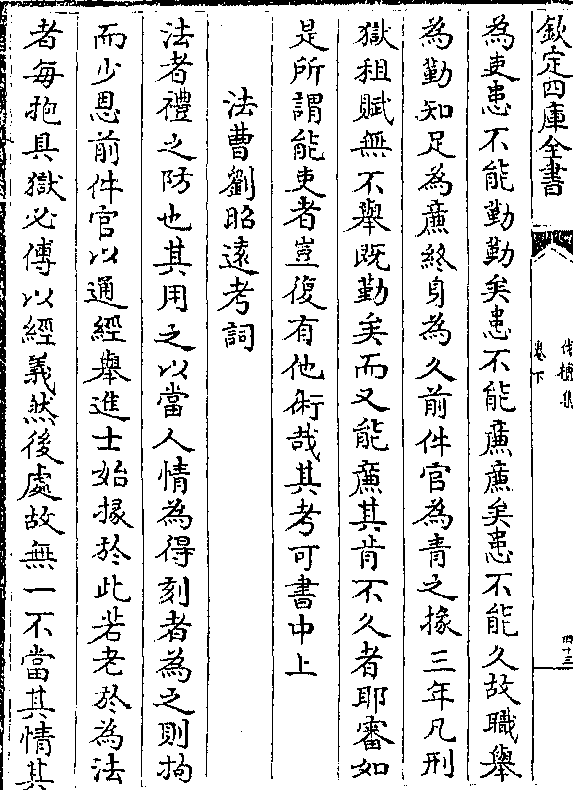 欽定四庫全書
伐檀集
卷下
四十三
為吏患不能勤勤矣患不能亷亷矣患不能久故職舉
為勤知足為亷終身為久前件官為青之掾三年凡刑
獄租賦無不舉既勤矣而又能亷其肯不久者耶審如
是所謂能吏者豈復有他術哉其考可書中上
法曹劉昭遠考詞
法者禮之防也其用之以當人情為得刻者為之則拘
而少恩前件官以通經舉進士始掾於此若老於為法
者每抱具獄必傅以經義然後處故無一不當其情其